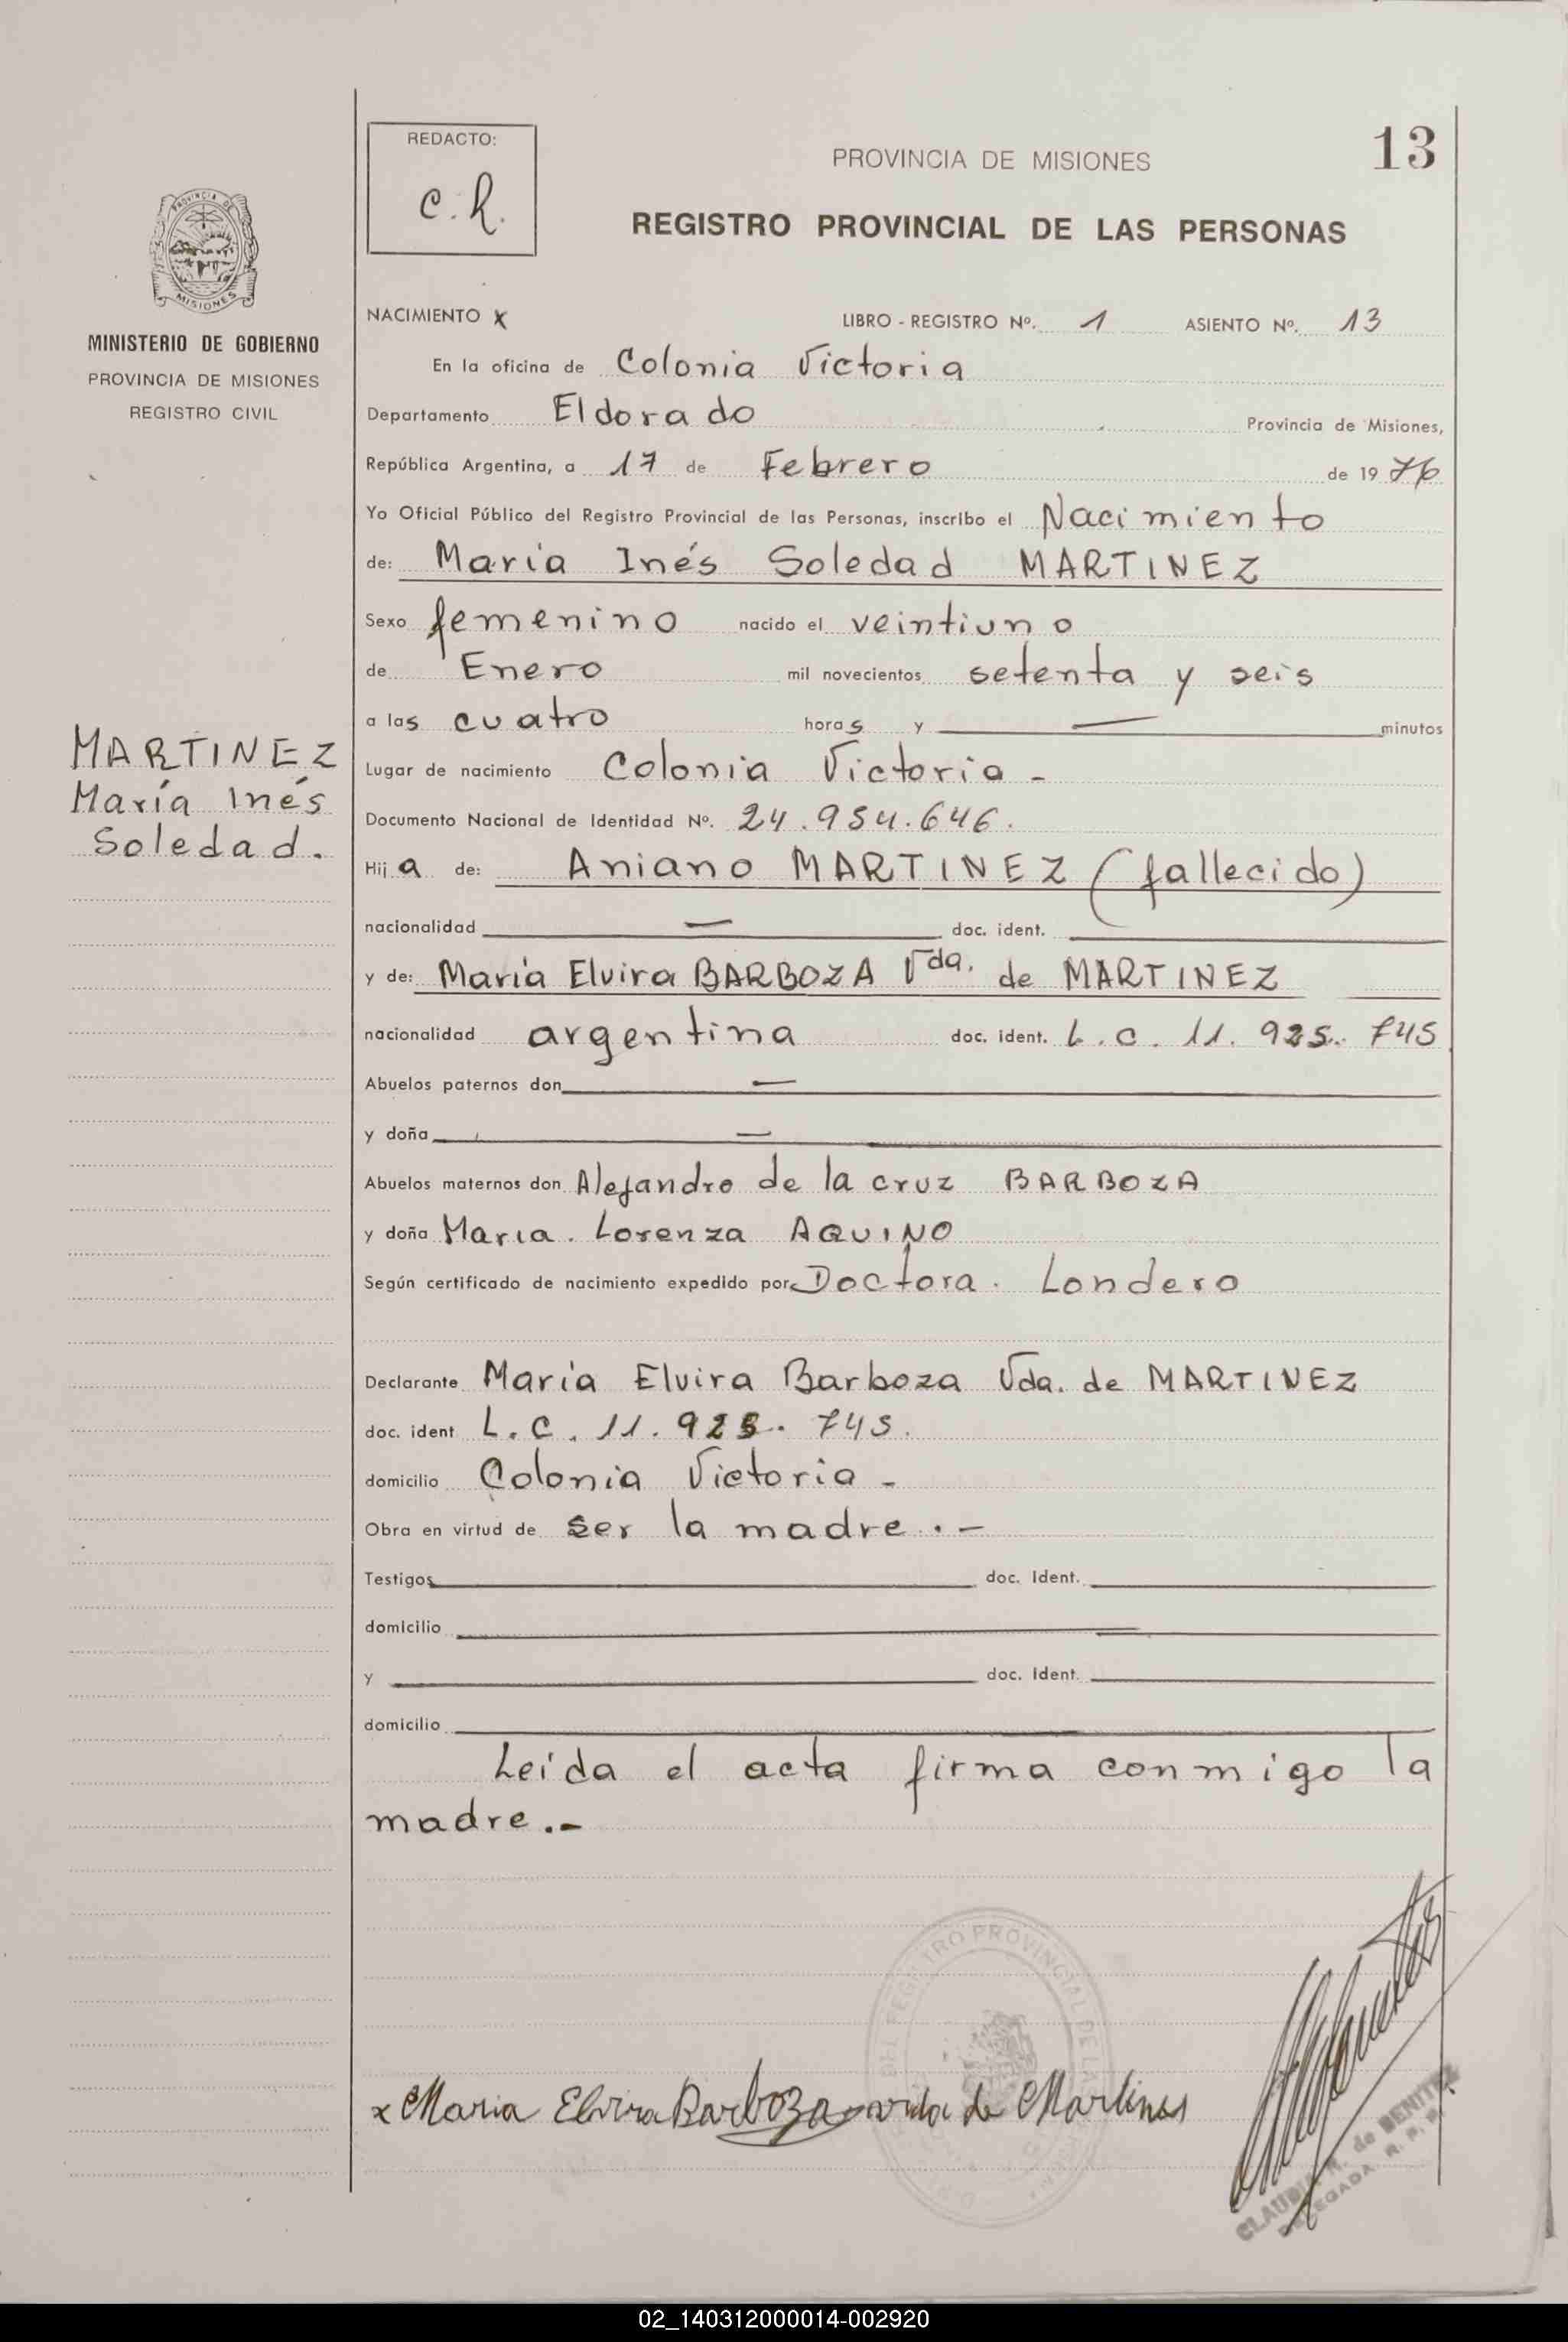 13
REDACTO:
C.R.
PROVINCIA DE MISIONES
REGISTRO PROVINCIAL DE LAS PERSONAS
PROVINCIA DE
MISIONES
MINISTERIO DE GOBIERNO
PROVINCIA DE MISIONES
REGISTRO CIVIL
NACIMIENTO x LIBRO - REGISTRO Nº. 1 ASIENTO Nº. 13
En la oficina de Colonia Victoria
Departamento Eldorado Provincia de Misiones,
República Argentina, a 17 de Febrero de 1976
Yo Oficial Público del Registro Provincial de las Personas, inscribo el Nacimiento
de: María Inés Soledad MARTINEZ
Sexo femenino nacido el veintiuno
de Enero mil novecientos setenta y seis
a las cuatro horas y — minutos
MARTINEZ
María Inés
Soledad.
Lugar de nacimiento Colonia Victoria -
Documento Nacional de Identidad Nº. 24.954.646.
Hija de: Aniano MARTINEZ (fallecido)
nacionalidad — doc. ident.
y de: María Elvira BARBOZA Vda. de MARTINEZ
nacionalidad argentina doc. ident. L.C. 11.925.745
Abuelos paternos don —
y doña —
Abuelos maternos don Alejandro de la cruz BARBOZA
y doña María. Lorenza AQUINO
Según certificado de nacimiento expedido por Doctora. Londero
Declarante María Elvira Barboza Vda. de MARTINEZ
doc. ident L.C. 11.925.745.
domicilio Colonia Victoria -
Obra en virtud de ser la madre.-
Testigos doc. Ident.
domicilio
y doc. Ident.
domicilio
Leída el acta firma conmigo la
madre.-
REGISTRO PROVINCIAL DE LAS
x Maria Elvira Barboza vida de Martines
CLAUDIA R. de BENITEZ
DELEGADA R. P. P.
02_140312000014-002920